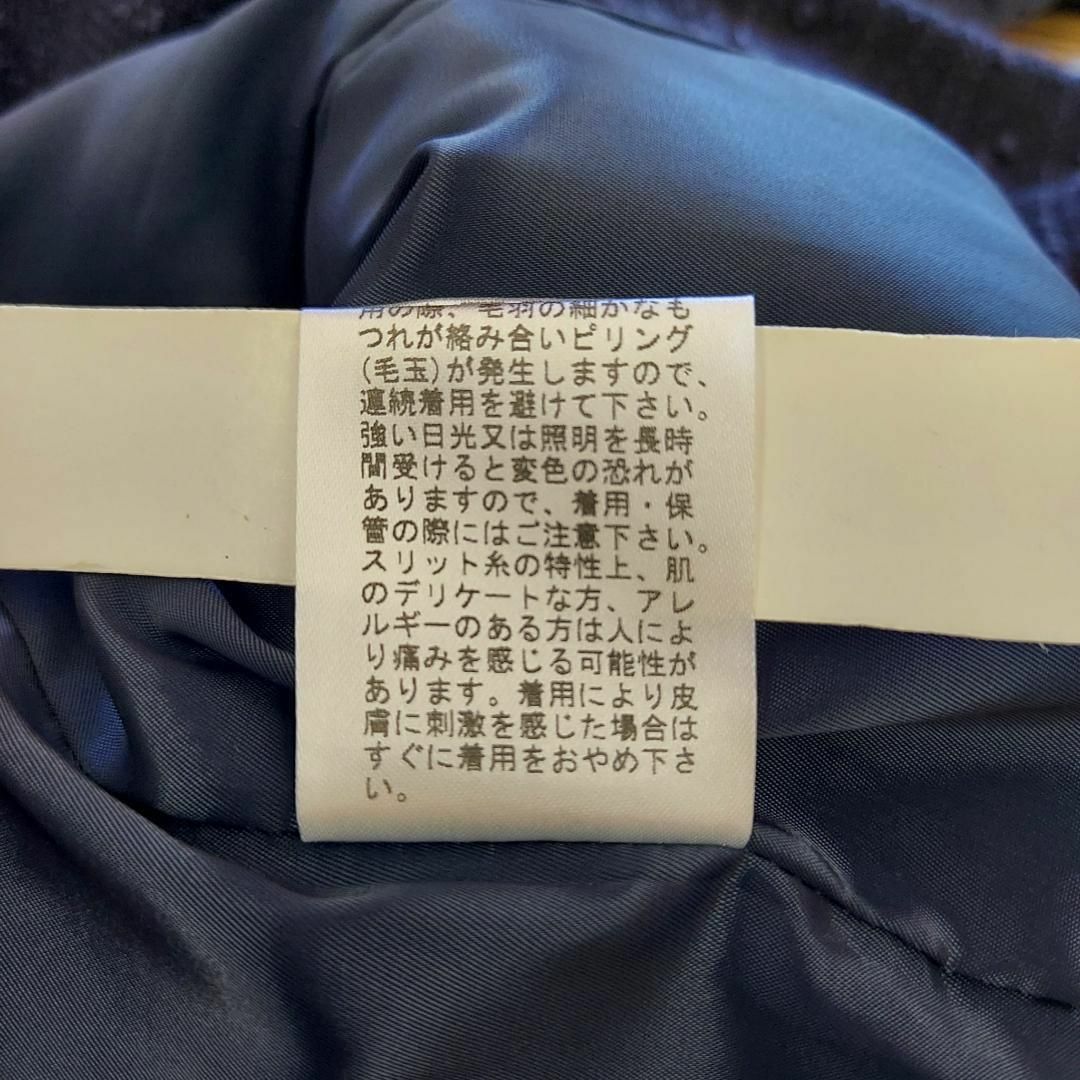 用の際、毛羽の細かなも
つれが絡み合いピリング
(毛玉)が発生しますので、
連続着用を避けて下さい。
強い日光又は照明を長時
間受けると変色の恐れが
ありますので、着用・保
管の際にはご注意下さい。
スリット糸の特性上、肌
のデリケートな方、アレ
ルギーのある方は人によ
り痛みを感じる可能性が
あります。着用により皮
膚に刺激を感じた場合は
すぐに着用をおやめ下さ
い。